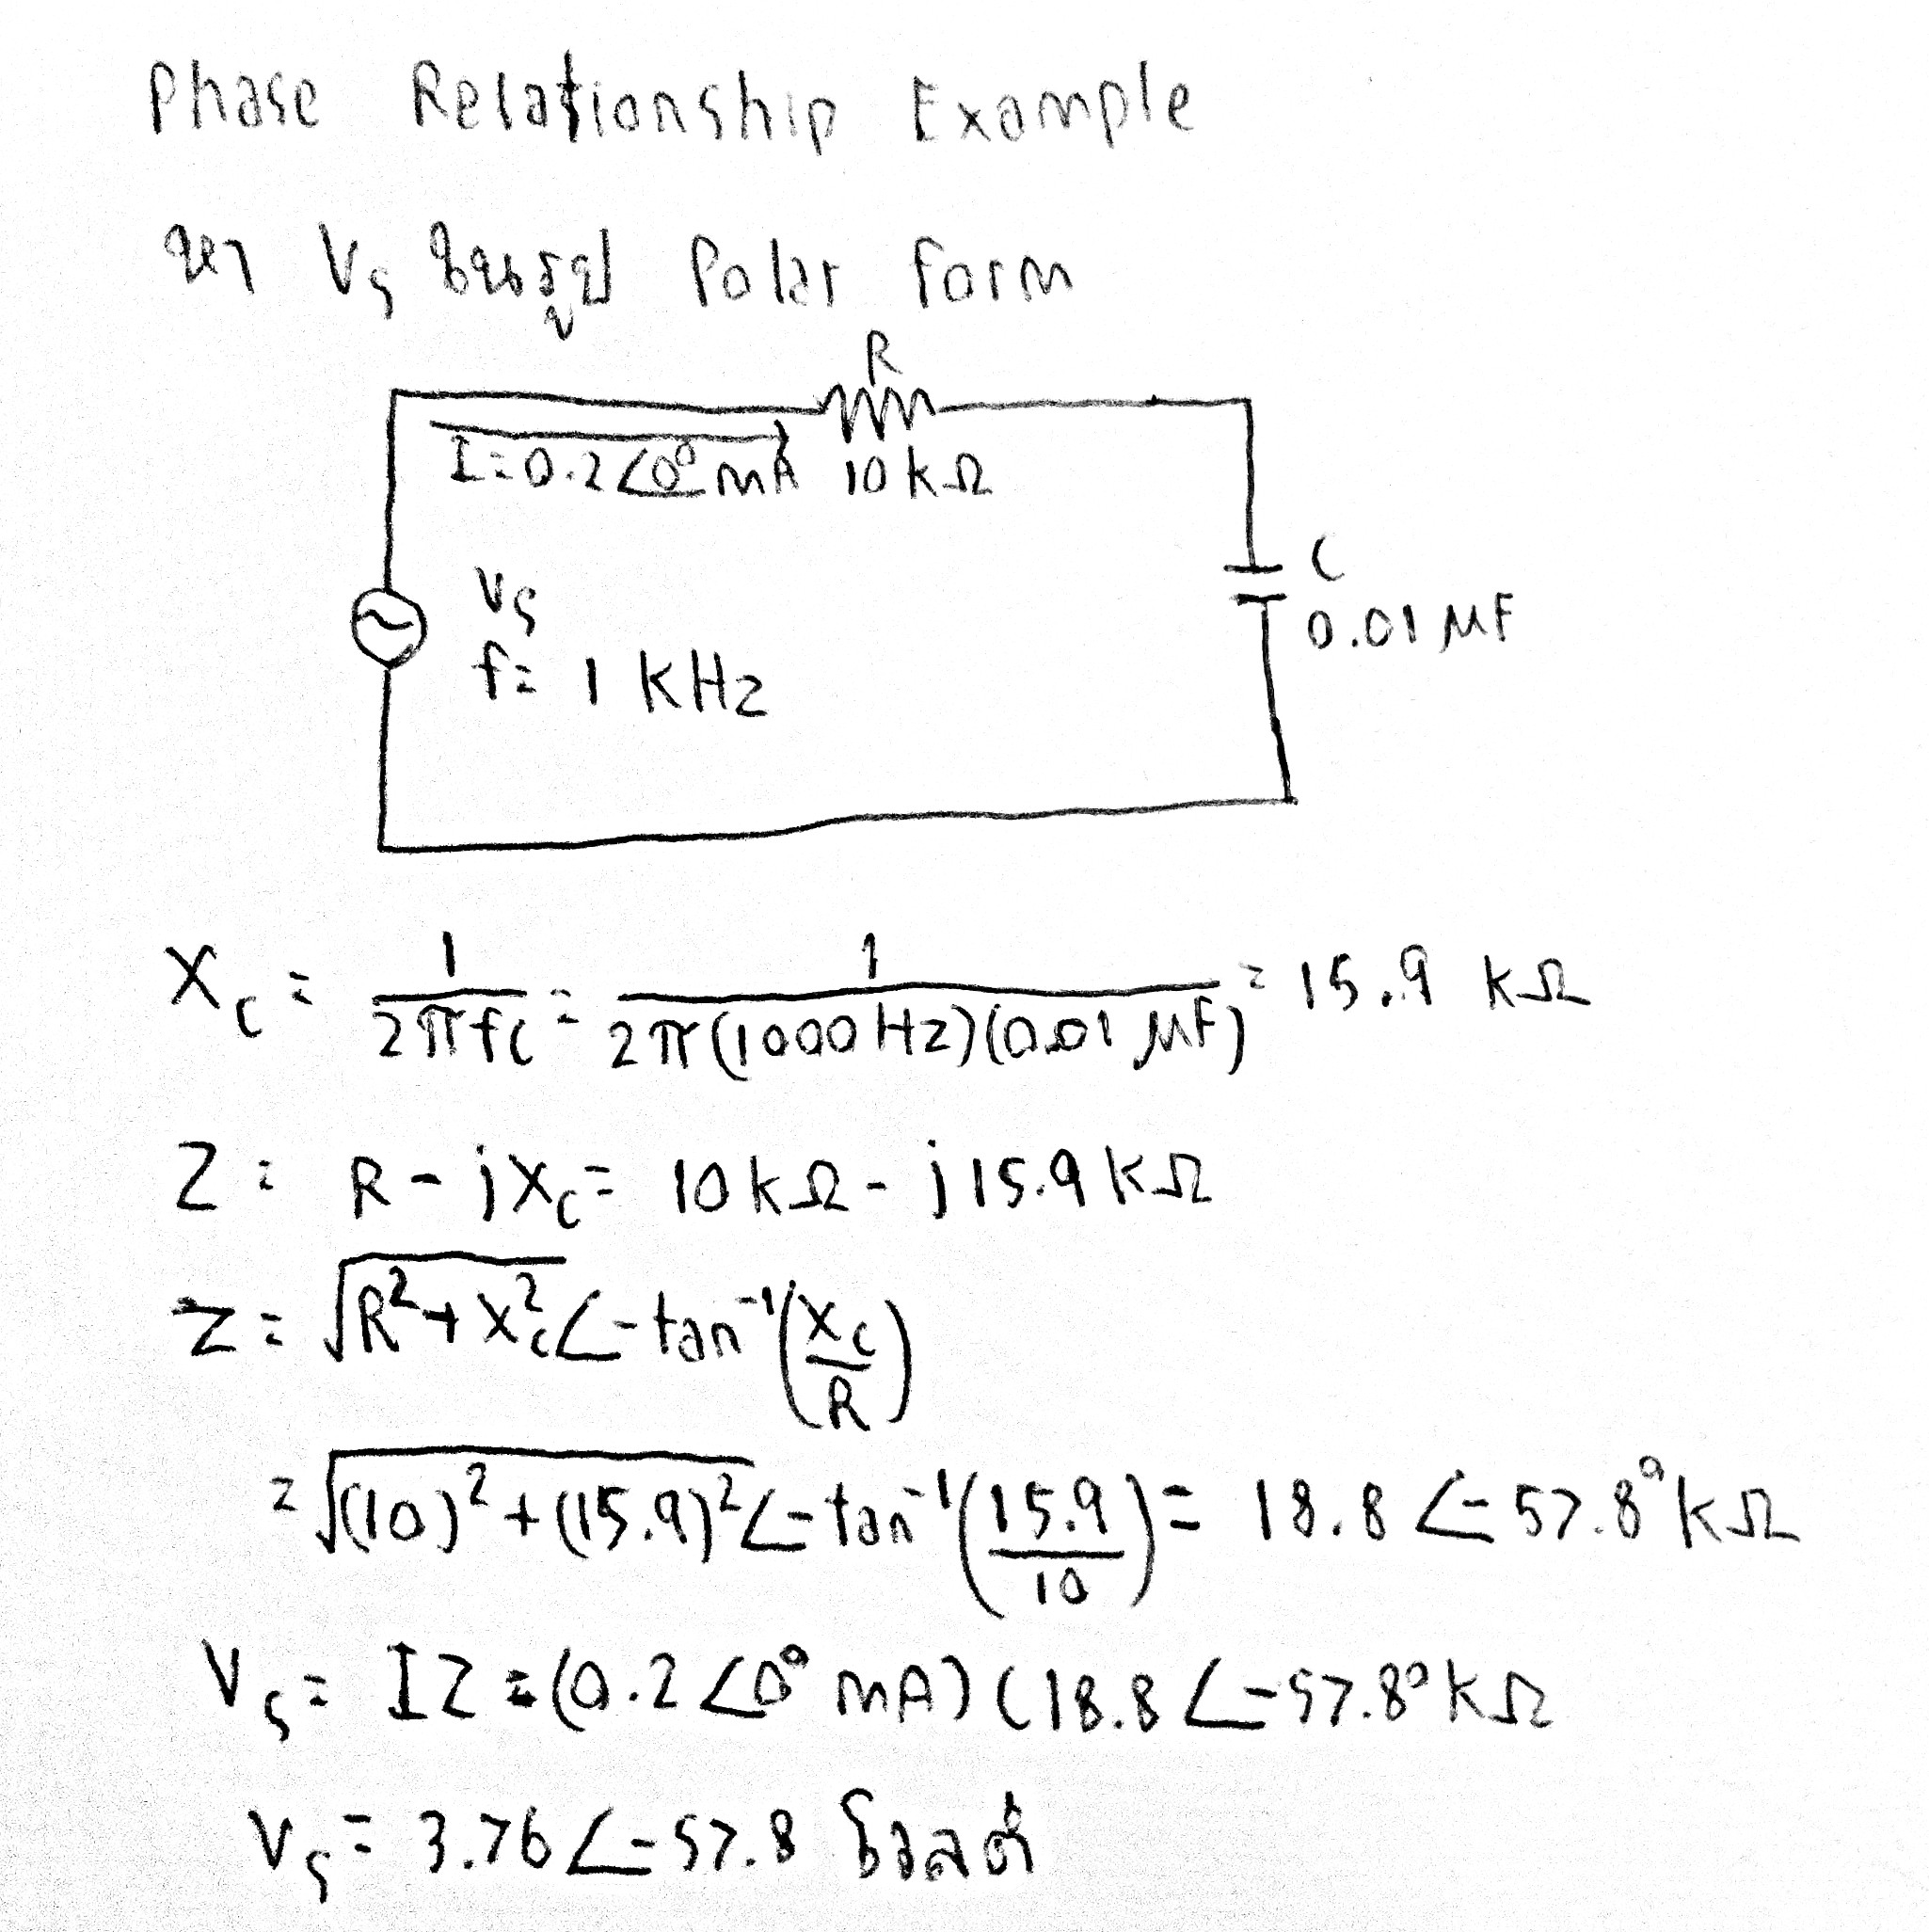 Phase Relationship Example
หา Vs ในรูป Polar form
R
I=0.2∠0° mA 10 kΩ
Vs
f= 1 KHz
C
0.01 μF
Xc = 1/(2πfc) = 1/(2π(1000Hz)(0.01 μF)) = 15.9 kΩ
Z = R - jXc = 10kΩ - j15.9kΩ
Z = √(R²+Xc²)∠-tan⁻¹(Xc/R)
= √((10)²+(15.9)²)∠-tan⁻¹(15.9/10) = 18.8∠-57.8°kΩ
Vs = IZ = (0.2∠0° mA)(18.8∠-57.8°kΩ
Vs = 3.76∠-57.8 โวลต์